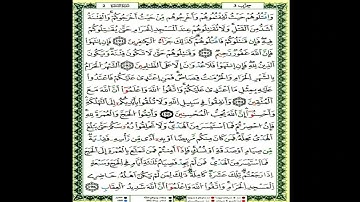 وَٱقۡتُلُوهُمۡ حَيۡثُ ثَقِفۡتُمُوهُمۡ وَأَخۡرِجُوهُم مِّنۡ حَيۡثُ أَخۡرَجُوكُمۡۚ وَٱلۡفِتۡنَةُ
أَشَدُّ مِنَ ٱلۡقَتۡلِۚ وَلَا تُقَٰتِلُوهُمۡ عِندَ ٱلۡمَسۡجِدِ ٱلۡحَرَامِ حَتَّىٰ يُقَٰتِلُوكُمۡ
فِيهِۖ فَإِن قَٰتَلُوكُمۡ فَٱقۡتُلُوهُمۡۗ كَذَٰلِكَ جَزَآءُ ٱلۡكَٰفِرِينَ فَإِنِ ٱنتَهَوۡاْ
فَإِنَّ ٱللَّهَ غَفُورٞ رَّحِيمٞ وَقَٰتِلُوهُمۡ حَتَّىٰ لَا تَكُونَ فِتۡنَةٞ وَيَكُونَ
ٱلدِّينُ لِلَّهِۖ فَإِنِ ٱنتَهَوۡاْ فَلَا عُدۡوَٰنَ إِلَّا عَلَى ٱلظَّٰلِمِينَ ٱلشَّهۡرُ ٱلۡحَرَامُ
بِٱلشَّهۡرِ ٱلۡحَرَامِ وَٱلۡحُرُمَٰتُ قِصَاصٞۚ فَمَنِ ٱعۡتَدَىٰ عَلَيۡكُمۡ فَٱعۡتَدُواْ
عَلَيۡهِ بِمِثۡلِ مَا ٱعۡتَدَىٰ عَلَيۡكُمۡۚ وَٱتَّقُواْ ٱللَّهَ وَٱعۡلَمُوٓاْ أَنَّ ٱللَّهَ مَعَ
ٱلۡمُتَّقِينَ وَأَنفِقُواْ فِي سَبِيلِ ٱللَّهِ وَلَا تُلۡقُواْ بِأَيۡدِيكُمۡ إِلَى ٱلتَّهۡلُكَةِ
وَأَحۡسِنُوٓاْۚ إِنَّ ٱللَّهَ يُحِبُّ ٱلۡمُحۡسِنِينَ وَأَتِمُّواْ ٱلۡحَجَّ وَٱلۡعُمۡرَةَ لِلَّهِۚ
فَإِنۡ أُحۡصِرۡتُمۡ فَمَا ٱسۡتَيۡسَرَ مِنَ ٱلۡهَدۡيِۖ وَلَا تَحۡلِقُواْ رُءُوسَكُمۡ حَتَّىٰ يَبۡلُغَ
ٱلۡهَدۡيُ مَحِلَّهُۥۚ فَمَن كَانَ مِنكُم مَّرِيضًا أَوۡ بِهِۦٓ أَذٗى مِّن رَّأۡسِهِۦ فَفِدۡيَةٞ
مِّن صِيَامٍ أَوۡ صَدَقَةٍ أَوۡ نُسُكٖۚ فَإِذَآ أَمِنتُمۡ فَمَن تَمَتَّعَ بِٱلۡعُمۡرَةِ إِلَى ٱلۡحَجِّ
فَمَا ٱسۡتَيۡسَرَ مِنَ ٱلۡهَدۡيِۚ فَمَن لَّمۡ يَجِدۡ فَصِيَامُ ثَلَٰثَةِ أَيَّامٖ فِي ٱلۡحَجِّ وَسَبۡعَةٍ
إِذَا رَجَعۡتُمۡۗ تِلۡكَ عَشَرَةٞ كَامِلَةٞۗ ذَٰلِكَ لِمَن لَّمۡ يَكُنۡ أَهۡلُهُۥ حَاضِرِي
ٱلۡمَسۡجِدِ ٱلۡحَرَامِۚ وَٱتَّقُواْ ٱللَّهَ وَٱعۡلَمُوٓاْ أَنَّ ٱللَّهَ شَدِيدُ ٱلۡعِقَابِ